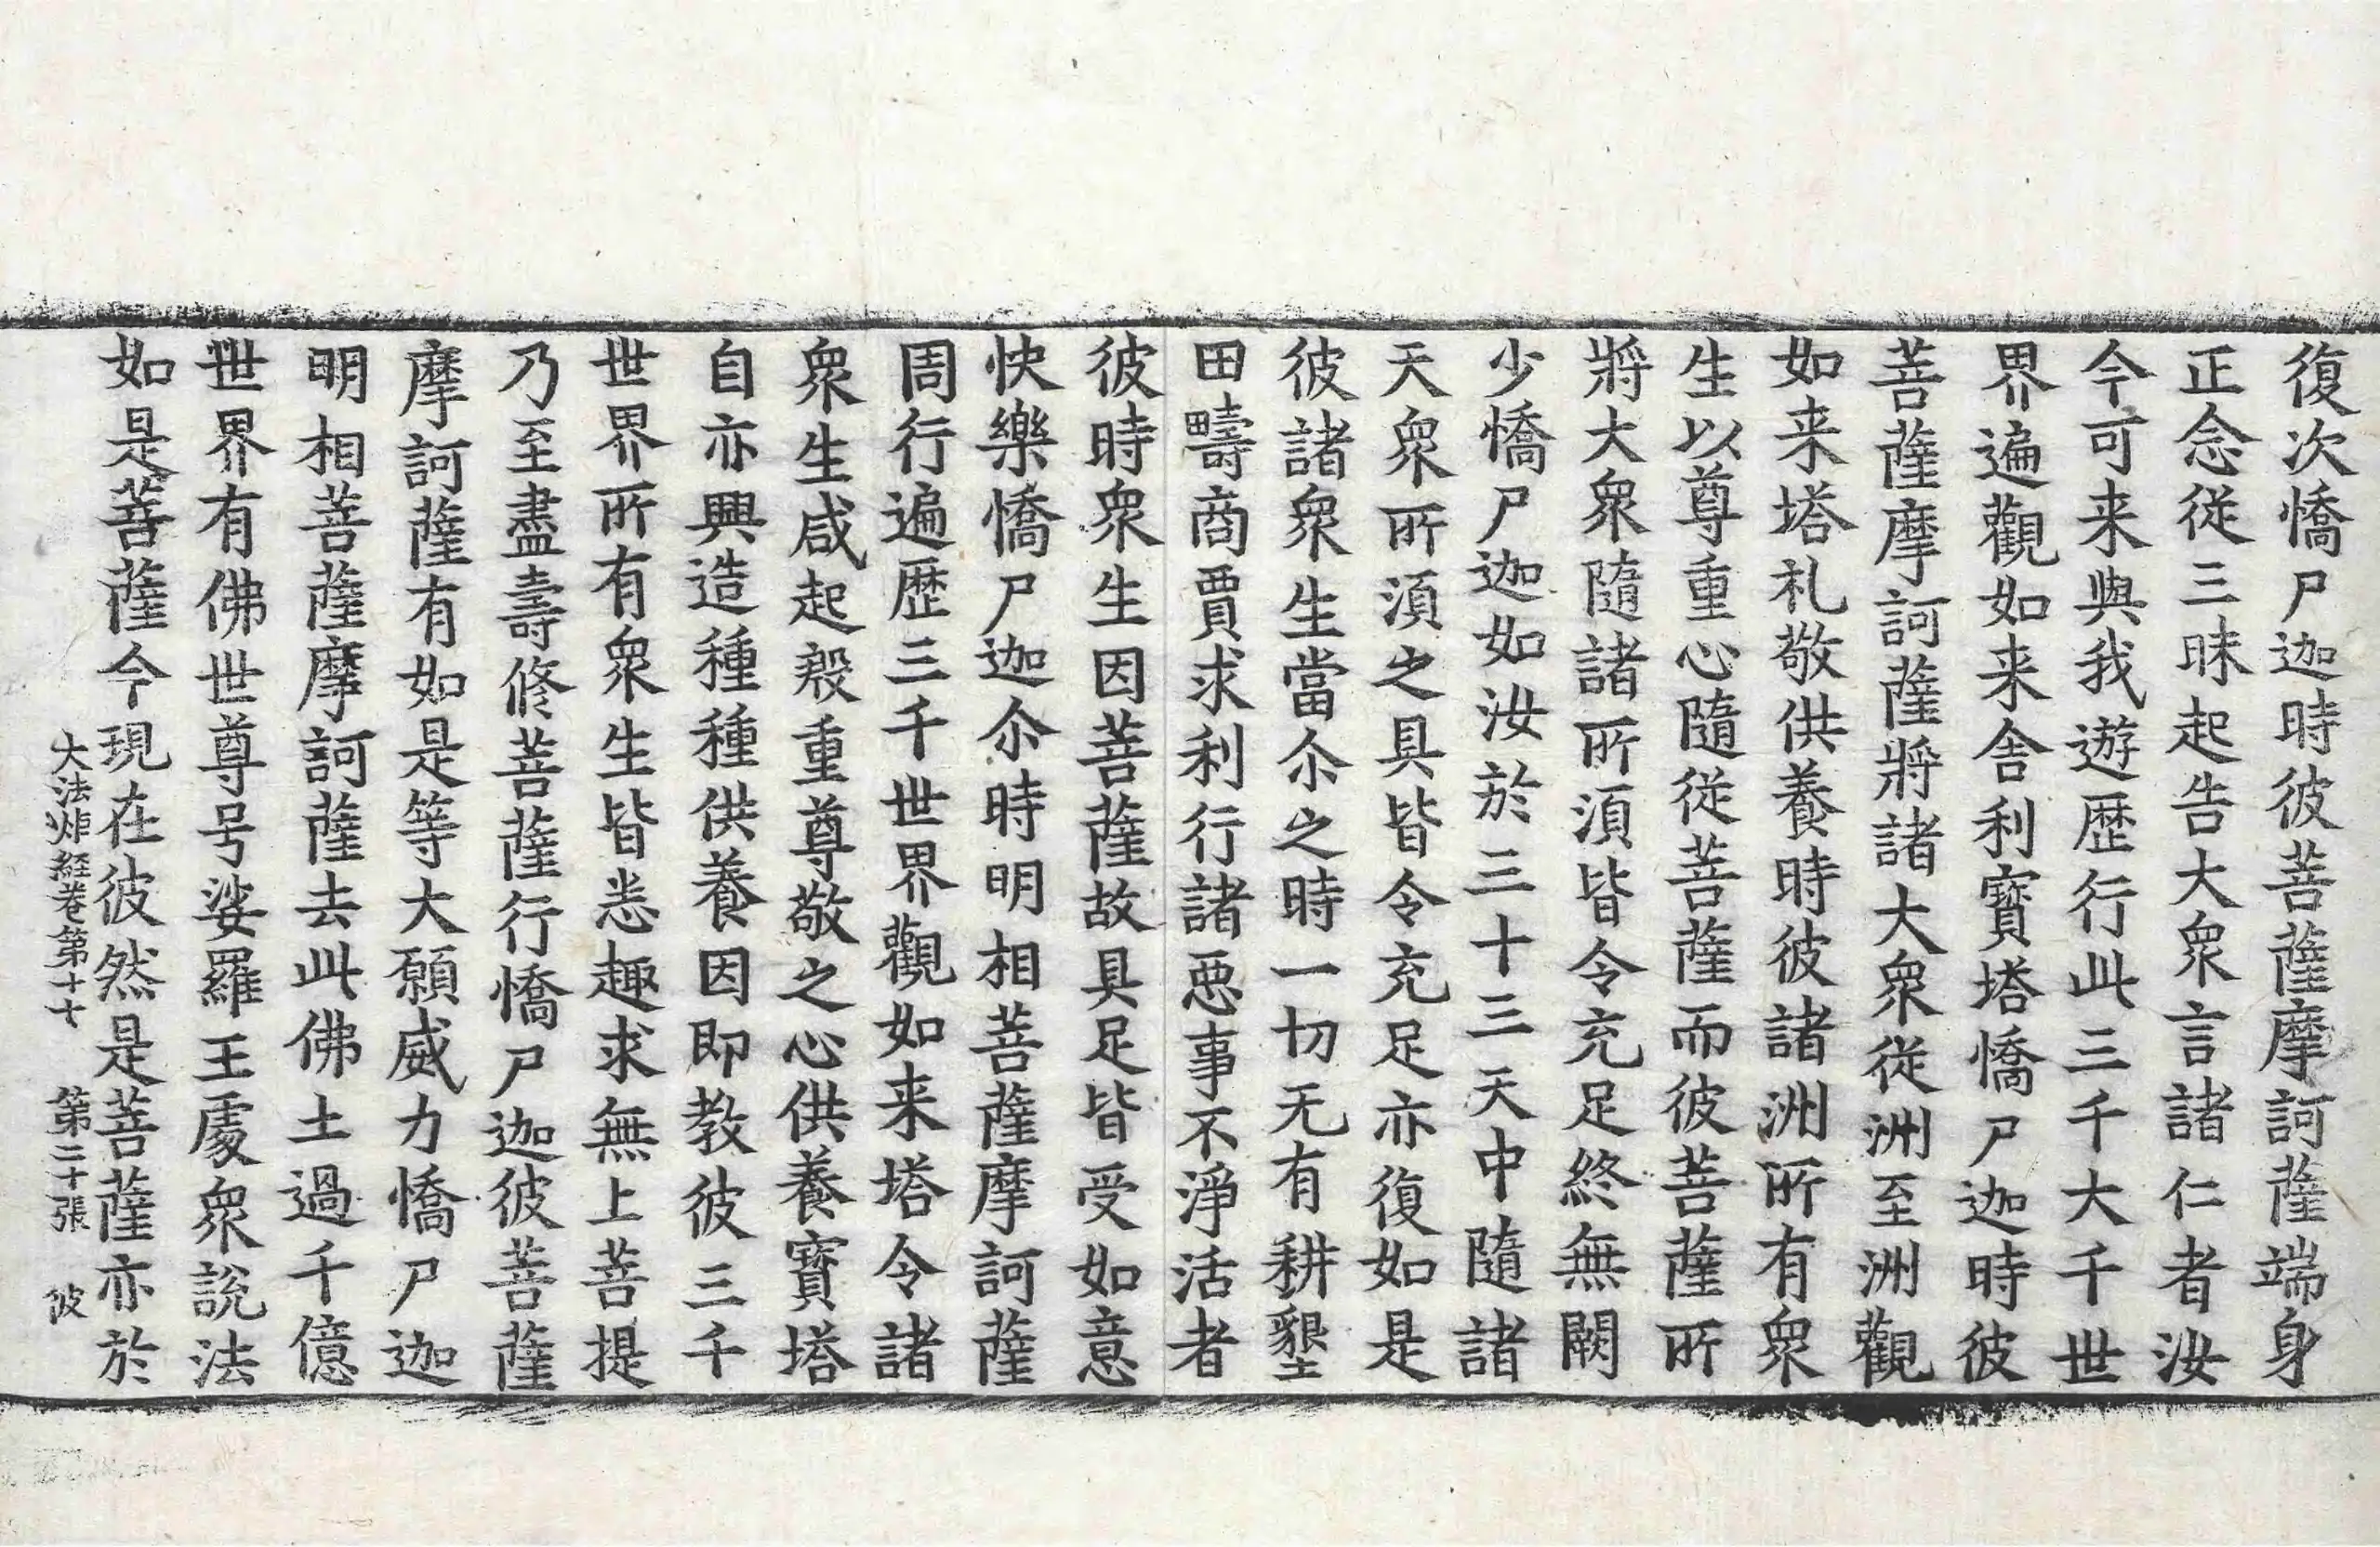 復次憍尸迦時彼菩薩摩訶薩端身
正念從三昧起告大衆言諸仁者汝
今可来與我遊歷行此三千大千世
界遍觀如来舍利寶塔憍尸迦時彼
菩薩摩訶薩將諸大衆從洲至洲觀
如来塔礼敬供養時彼諸洲所有衆
生以尊重心隨從菩薩而彼菩薩所
將大衆隨諸所湏皆令充足終無闕
少憍尸迦如汝於三十三天中隨諸
天衆所湏之具皆令充足亦復如是
彼諸衆生當尒之時一切无有耕墾
田疇商賈求利行諸惡事不淨活者
彼時衆生因菩薩故具足皆受如意
快樂憍尸迦尒時明相菩薩摩訶薩
周行遍歷三千世界觀如来塔令諸
衆生咸起殷重尊敬之心供養寶塔
自亦興造種種供養因即教彼三千
世界所有衆生皆悉趣求無上菩提
乃至盡壽修菩薩行憍尸迦彼菩薩
摩訶薩有如是等大願威力憍尸迦
明相菩薩摩訶薩去此佛土過千億
世界有佛世尊号娑羅王處衆說法
如是菩薩今現在彼然是菩薩亦於
大法炬経卷第十七 第二十張 彼